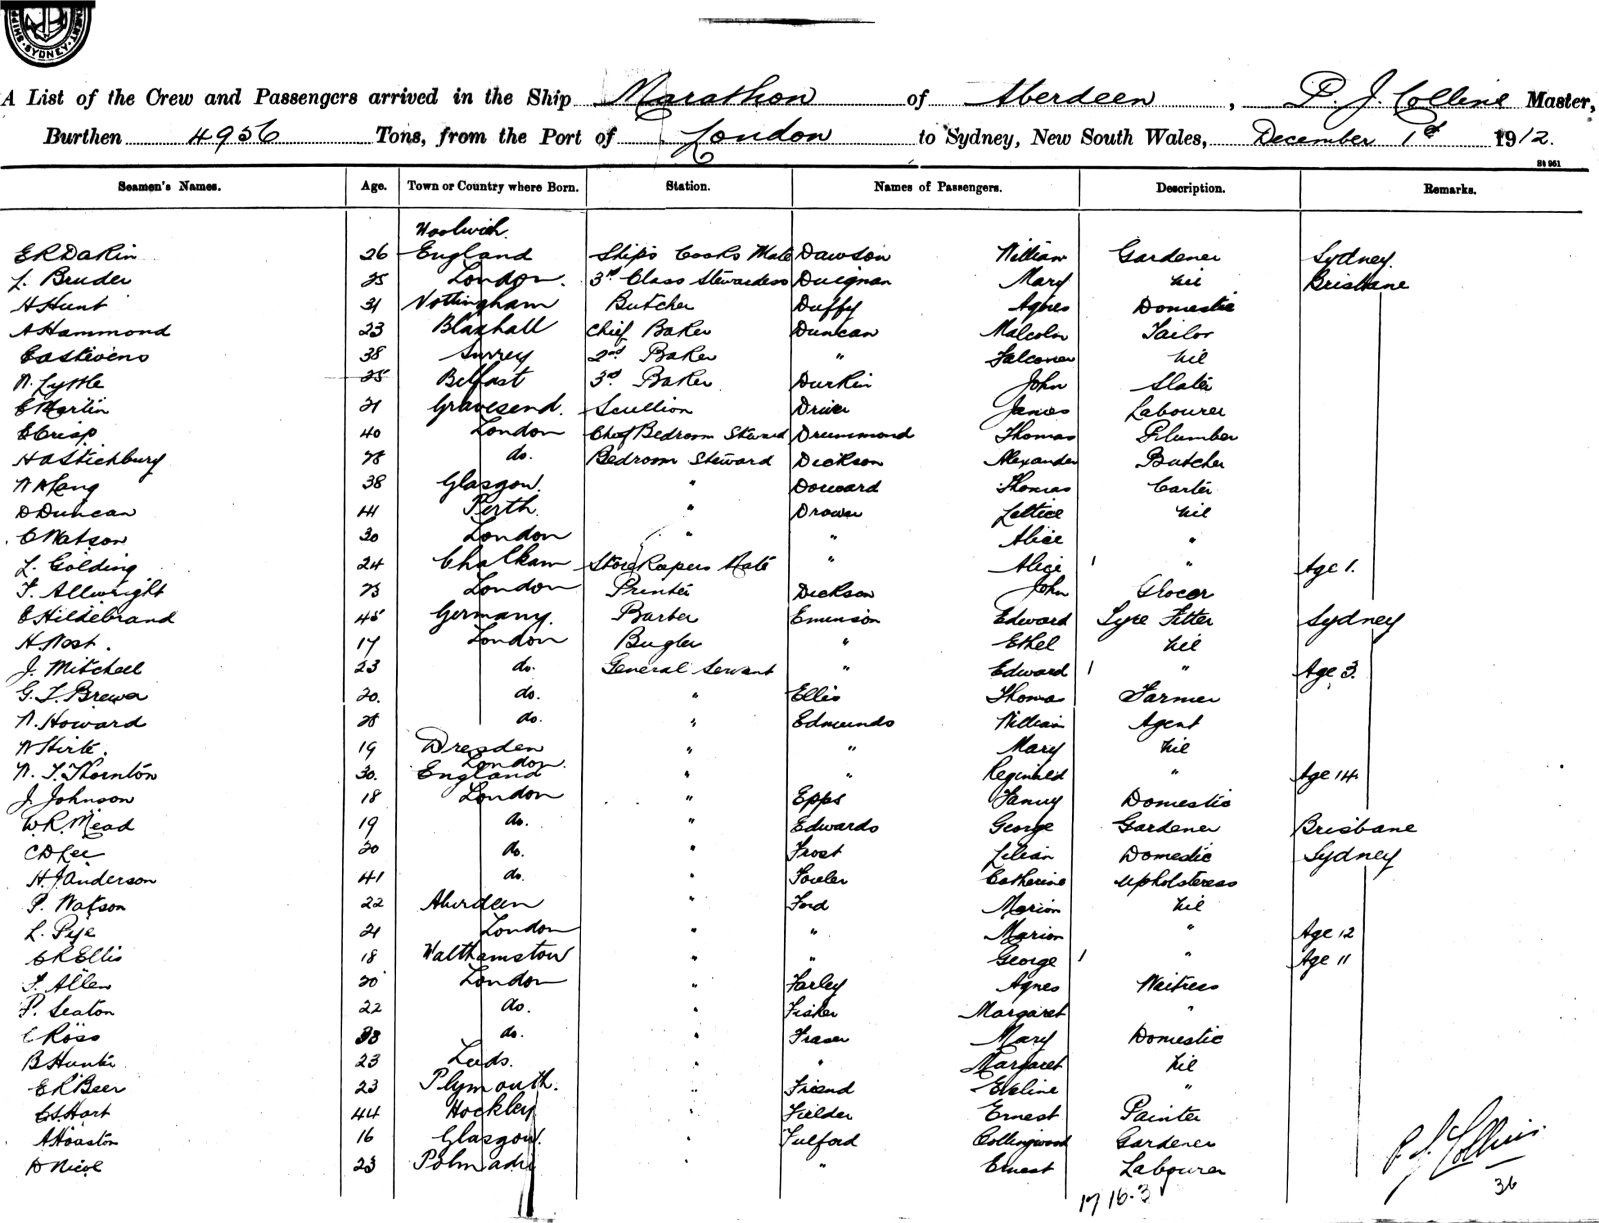 SYDNEY
A List of the Crew and Passengers arrived in the Ship Marathon of Aberdeen, P. J. Collins Master,
Burthen 4956 Tons, from the Port of London to Sydney, New South Wales, December 1st 1912.
St 961
Seamen's Names. Age. Town or Country where Born. Station. Names of Passengers. Description. Remarks.
Woolwich
E R Dakin 26 England Ships Cooks Mate Dawson William Gardener Sydney
L. Bruder 25 London. 3rd Class Stewardess Duignan Mary Nil Brisbane
H Hunt 31 Nottingham Butcher Duffy Agnes Domestic
A Hammond 23 Blaxhall Chief Baker Duncan Malcolm Tailor
C A Stevens 38 Surrey 2nd Baker " Falconer Nil
W. Lyttle 25 Belfast 3rd Baker Durkin John Slater
C Martin 21 Gravesend. Scullion Driver James Labourer
C Crisp 40 London Chef Bedroom Steward Drummond Thomas Plumber
H A Stichbury 28 do. Bedroom Steward Dickson Alexander Butcher
W A Lang 38 Glasgow. " Douward Thomas Carter
D Duncan 44 Perth. " Drower Lettice Nil
C Watson 30 London " " Alice "
L. Golding 24 Chatham Storekeepers Mate " Alice 1 " Age 1.
F. Allwright 23 London Printer Dickson John Grocer
C Hildebrand 45 Germany. Barber Emerson Edward Tyre Fitter Sydney
H West. 17 London Bugler " Ethel Nil
J. Mitchell 23 do. General Servant " Edward 1 " Age 3.
G. T. Brewer 20. do. " Ellis Thomas Farmer
W. Howard 28 do. " Edmunds William Agent
W Hirte. 19 Dresden " " Mary Nil
London.
W. T. Thornton 30. England " " Reginald " Age 14.
J. Johnson 18 London " Epps Fanny Domestic
W. R. Mead 19 do. " Edwards George Gardener Brisbane
C D Lee 20 do. " Frost Lilian Domestic Sydney
H. J Anderson 41 do. " Fowler Catherine Upholsteress
P. Watson 22 Aberdeen " Ford Marion Nil
L. Pye 21 London " " Marion " Age 12
C R Ellis 18 Walthamstow " " George 1 " Age 11
F. Allen 20 London " Farley Agnes Waitress
P. Seaton 22 do. " Fisher Margaret "
C Ross 33 do. " Fraser Mary Domestic
B Hunter 23 Leeds. " " Margaret Nil
E R Beer 23 Plymouth. " Friend Eveline "
C S. Hart 44 Hockley " Fielder Ernest Painter
A Houston 16 Glasgow. " Fulford Collingwood Gardener
D Nicol 23 Polmadie " " Ernest Labourer
P. J. Collins
17 16. 3
36